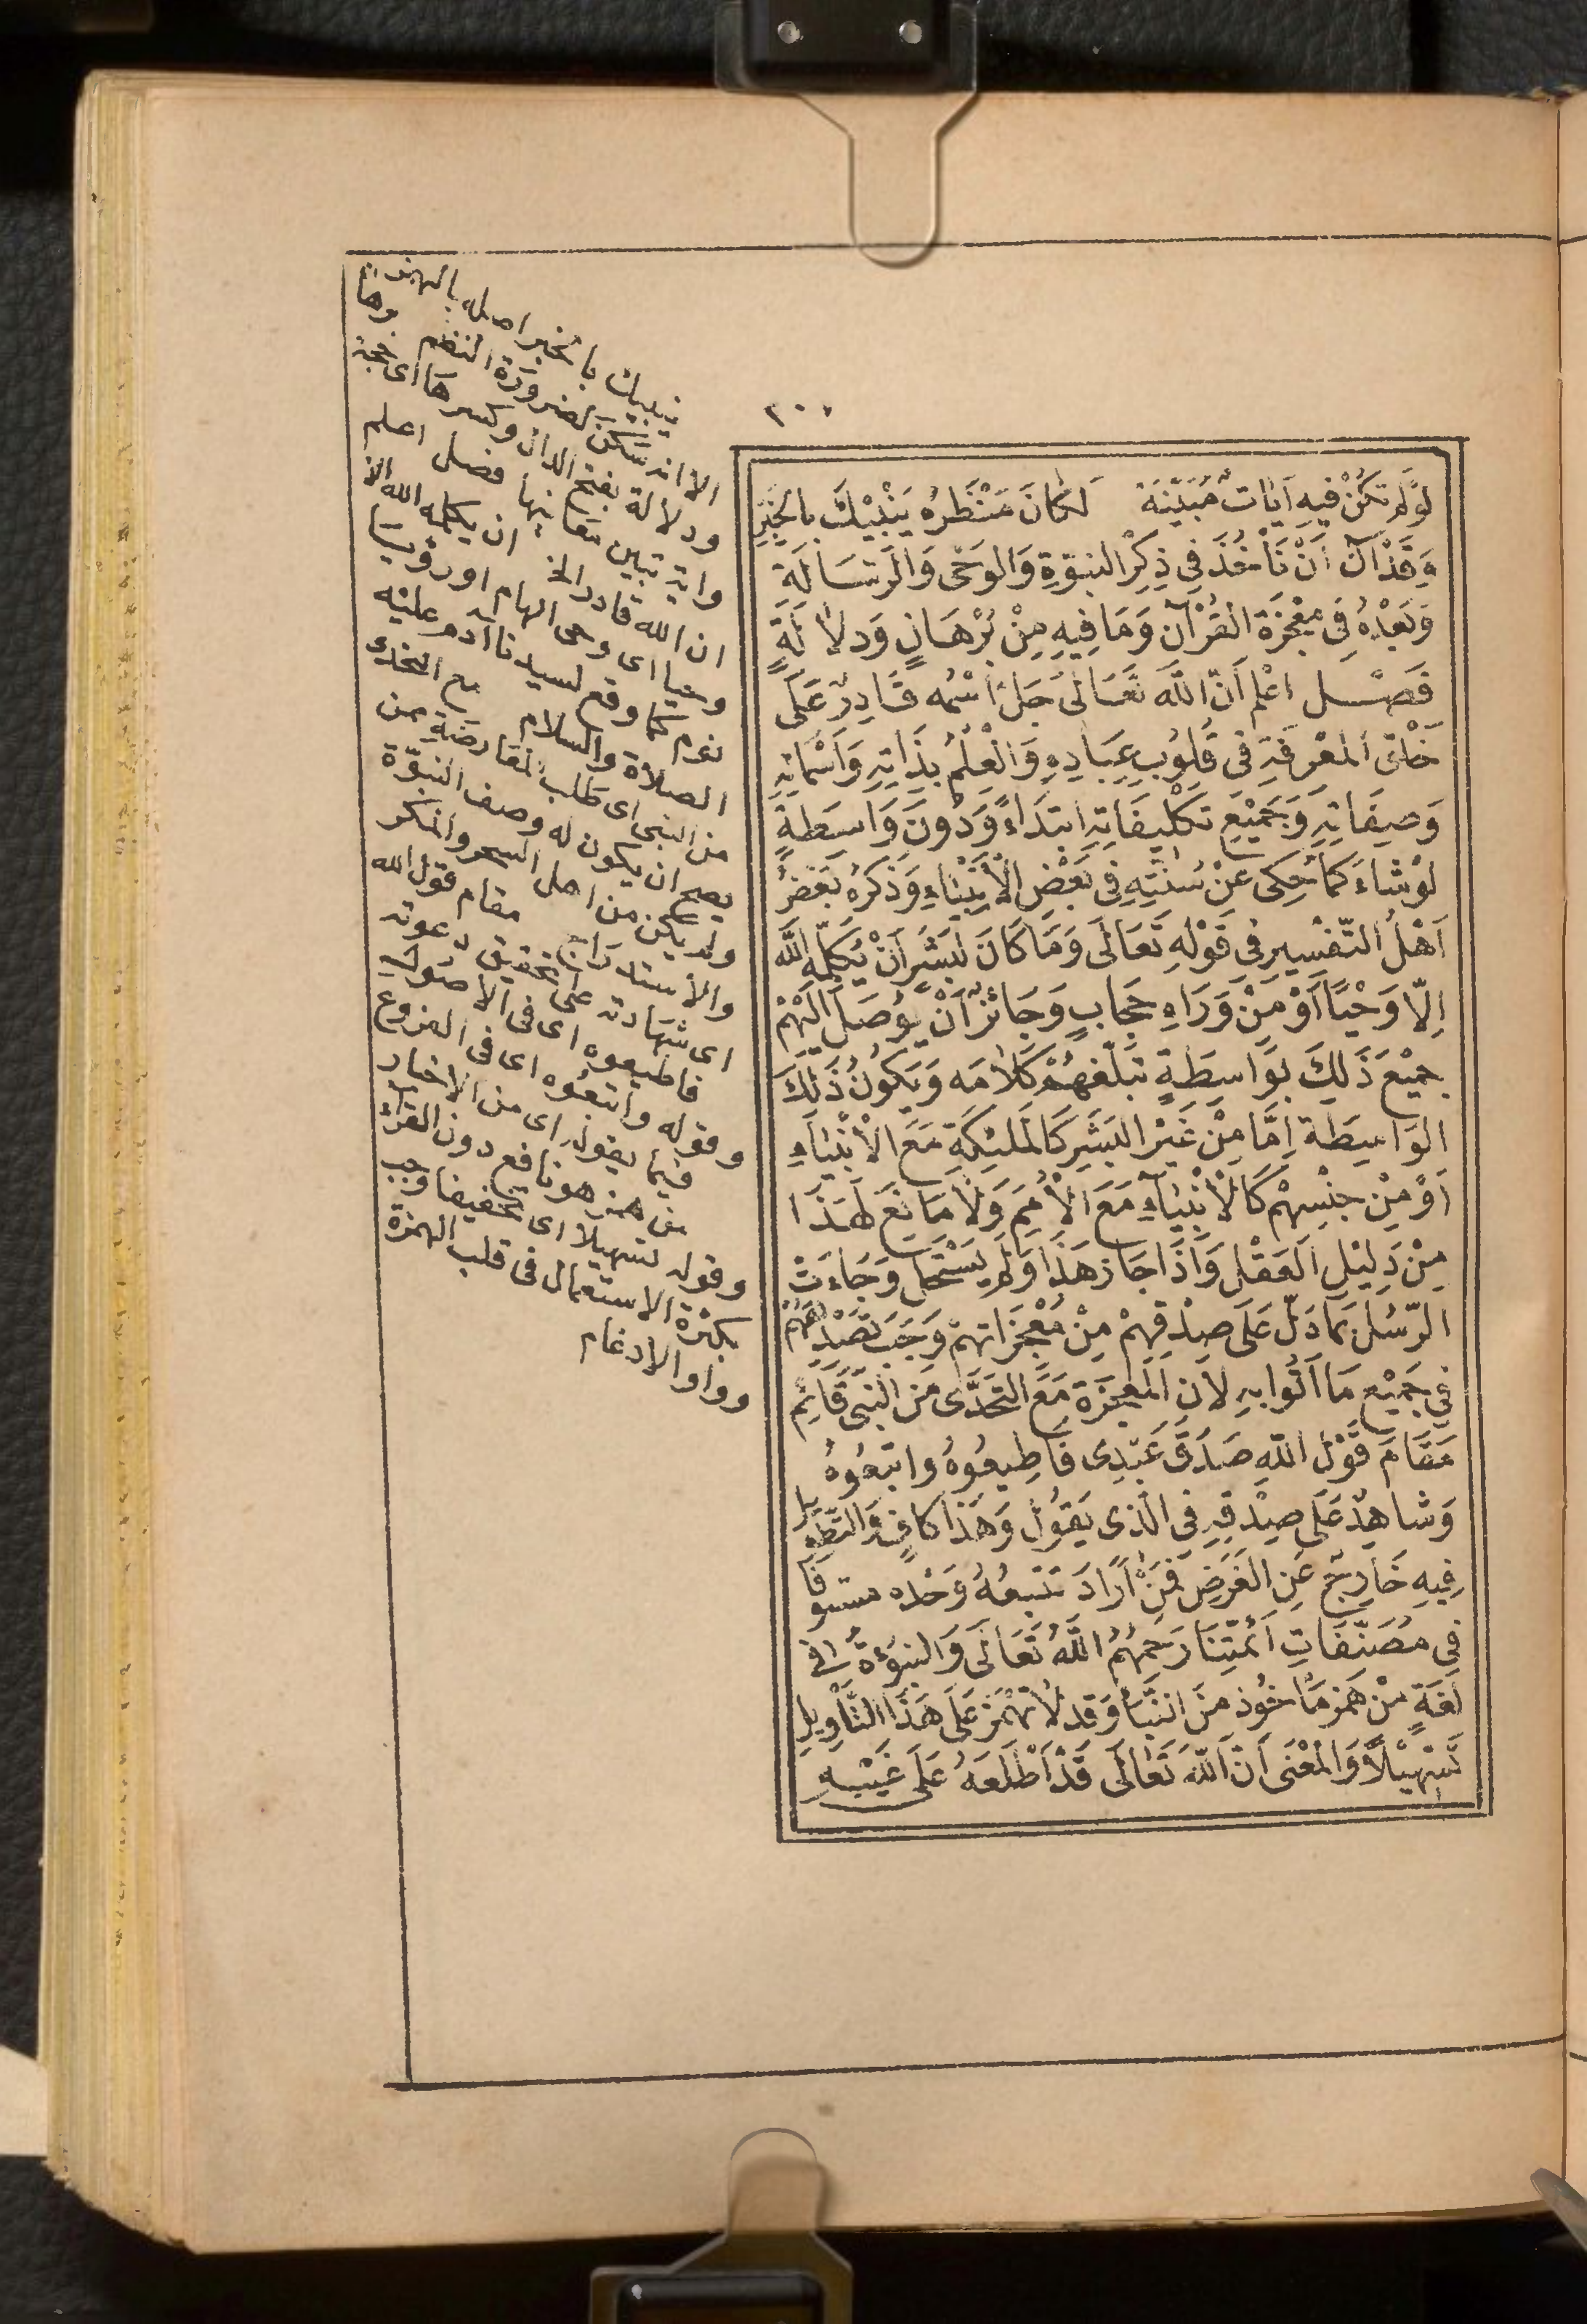 ٢٠٠
لَوْ لَمْ تَكُنْ فِيهِ آيَاتٌ مُبَيِّنَةٌ لَكَانَ مَنْظَرُهُ يُنْبِيْكَ بِالْخَبَرِ
وَقَدْ آنَ أَنْ نَأْخُذَ فِي ذِكْرِ النبوّةِ وَالوَحْى وَالرِّسَالَةِ
وَبَعْدَهُ فِي مُعْجِزَةِ القُرْآنِ وَمَا فِيهِ مِنْ بُرْهَانٍ وَدلَالَةٍ
فَصْل اعْلم أَنَّ اللَّهَ تَعَالَى جَلَّ اسْمُه قَادِرٌ عَلَى
خَلْقِ المَعْرِفَةِ فِى قُلُوبِ عِبَادِهِ وَالْعِلْمِ بِذَاتِهِ وَأَسْمَائِهِ
وَصِفَاتِهِ وَجَمِيْعِ تَكْلِيفَاتِهِ ابتَدَاءً وَدُونَ وَاسِطَةٍ
لَوْ شَاءَ كَمَا حُكِى عَنْ سُنَّتِهِ فِي بَعْضِ الْأَنْبِيَاءِ وَذَكَرَهُ بَعْضُ
أَهْلِ التّفْسِيرِ فِى قَوْلِهِ تَعَالَى وَمَا كَانَ لِبَشَرٍ أَنْ يُكَلِّمَه اللَّه
إِلّا وَحْيًا أَوْ مِنْ وَرَاءِ حِجَابٍ وَجَائزٌ أَنْ يُوصَلَ إِلَيْهِمْ
جَمِيْعَ ذَلِكَ بِوَاسِطَةٍ تُبَلِّغُهُمْ كَلَامَه وَيَكُونُ ذَلِكَ
الوَاسِطَة إِمَّا مِنْ غَيْرِ البَشَرِ كَالْمَلٰئِكَةِ مَعَ الْأَنْبِيَاءِ
أَوْ مِنْ جِنْسِهِمْ كَالْأَنْبِيَاءِ مَعَ الْأُمَمِ وَلَا مَانِعَ لِهَذَا
مِنْ دَلِيْلِ العَقْلِ وَإِذَا جَازَ هَذَا وَلَمْ يَسْتَحِلْ وَجَاءَتْ
الرّسُل بِمَا دَلَّ عَلَى صِدْقِهِمْ مِنْ مُعْجِزَاتِهِمْ وَجَبَ تَصْدِيْقُهُمْ
فِي جَمِيْعِ مَا أَتَوْا بِهِ لِأَنَّ المُعْجِزَةَ مَعَ التَّحَدِّى مِنَ النَّبِىِّ قَائِم
مَقَامَ قَوْلِ اللَّهِ صَدَقَ عَبْدِى فَأَطِيعُوهُ وَاتّبِعُوهُ
وَشَاهِدٌ عَلَى صِدْقِهِ فِى الّذِى يَقُولُ وَهَذَا كَافٍ وَالتّطْوِيلُ
فِيهِ خَارِجٌ عَنِ الغَرَضِ فَمَنْ أَرَادَ تَتَبُّعَهُ وَجَدَه مستوفًا
فِى مُصَنَّفَاتِ أَئِمَّتِنَا رَحِمَهُمُ اللَّهُ تَعَالَى وَالنبوءَةُ فِى
لُغَةِ مَنْ هَمَزَ مَأخُوذ مِنَ النّبَأِ وَقَدْ لَا تُهْمَزُ عَلَى هَذَا التَّأْوِيلِ
تَسْهِيْلًا وَالمَعْنَى أَنّ اللَّه تَعَالَى قَدْ أَطْلَعَهُ عَلَى غَيْبِهِ
ينبيك بالخبر اصله بالهمزة
الا انه سكن لضرورة النظم وهان
ودلالة بفتح الدال وكسرها اى حجة
واية تبين معانيها فصل اعلم
ان الله قادر الخ ان يكلمه الله الا
وحيا اى وحى الهام او رؤيا
نوم كما وقع لسيدنا آدم عليه
الصلاة والسلام مع التحدى
من النبى اى طلب المعارضة ممن
يصح ان يكون له وصف النبوّة
ولم يكن من اهل السحر والمكر
والاستدراج مقام قول الله
اى شهادته على تحقيق دعوته
فاطيعوه اى فى الاصول
وقوله واتبعوه اى فى الفروع
فيما يقول اى من الاخبار
من همز هو نافع دون القراء
وقوله تسهيلا اى تخفيفا وجب
بكثرة الاستعمال فى قلب الهمزة
وواوا والادغام